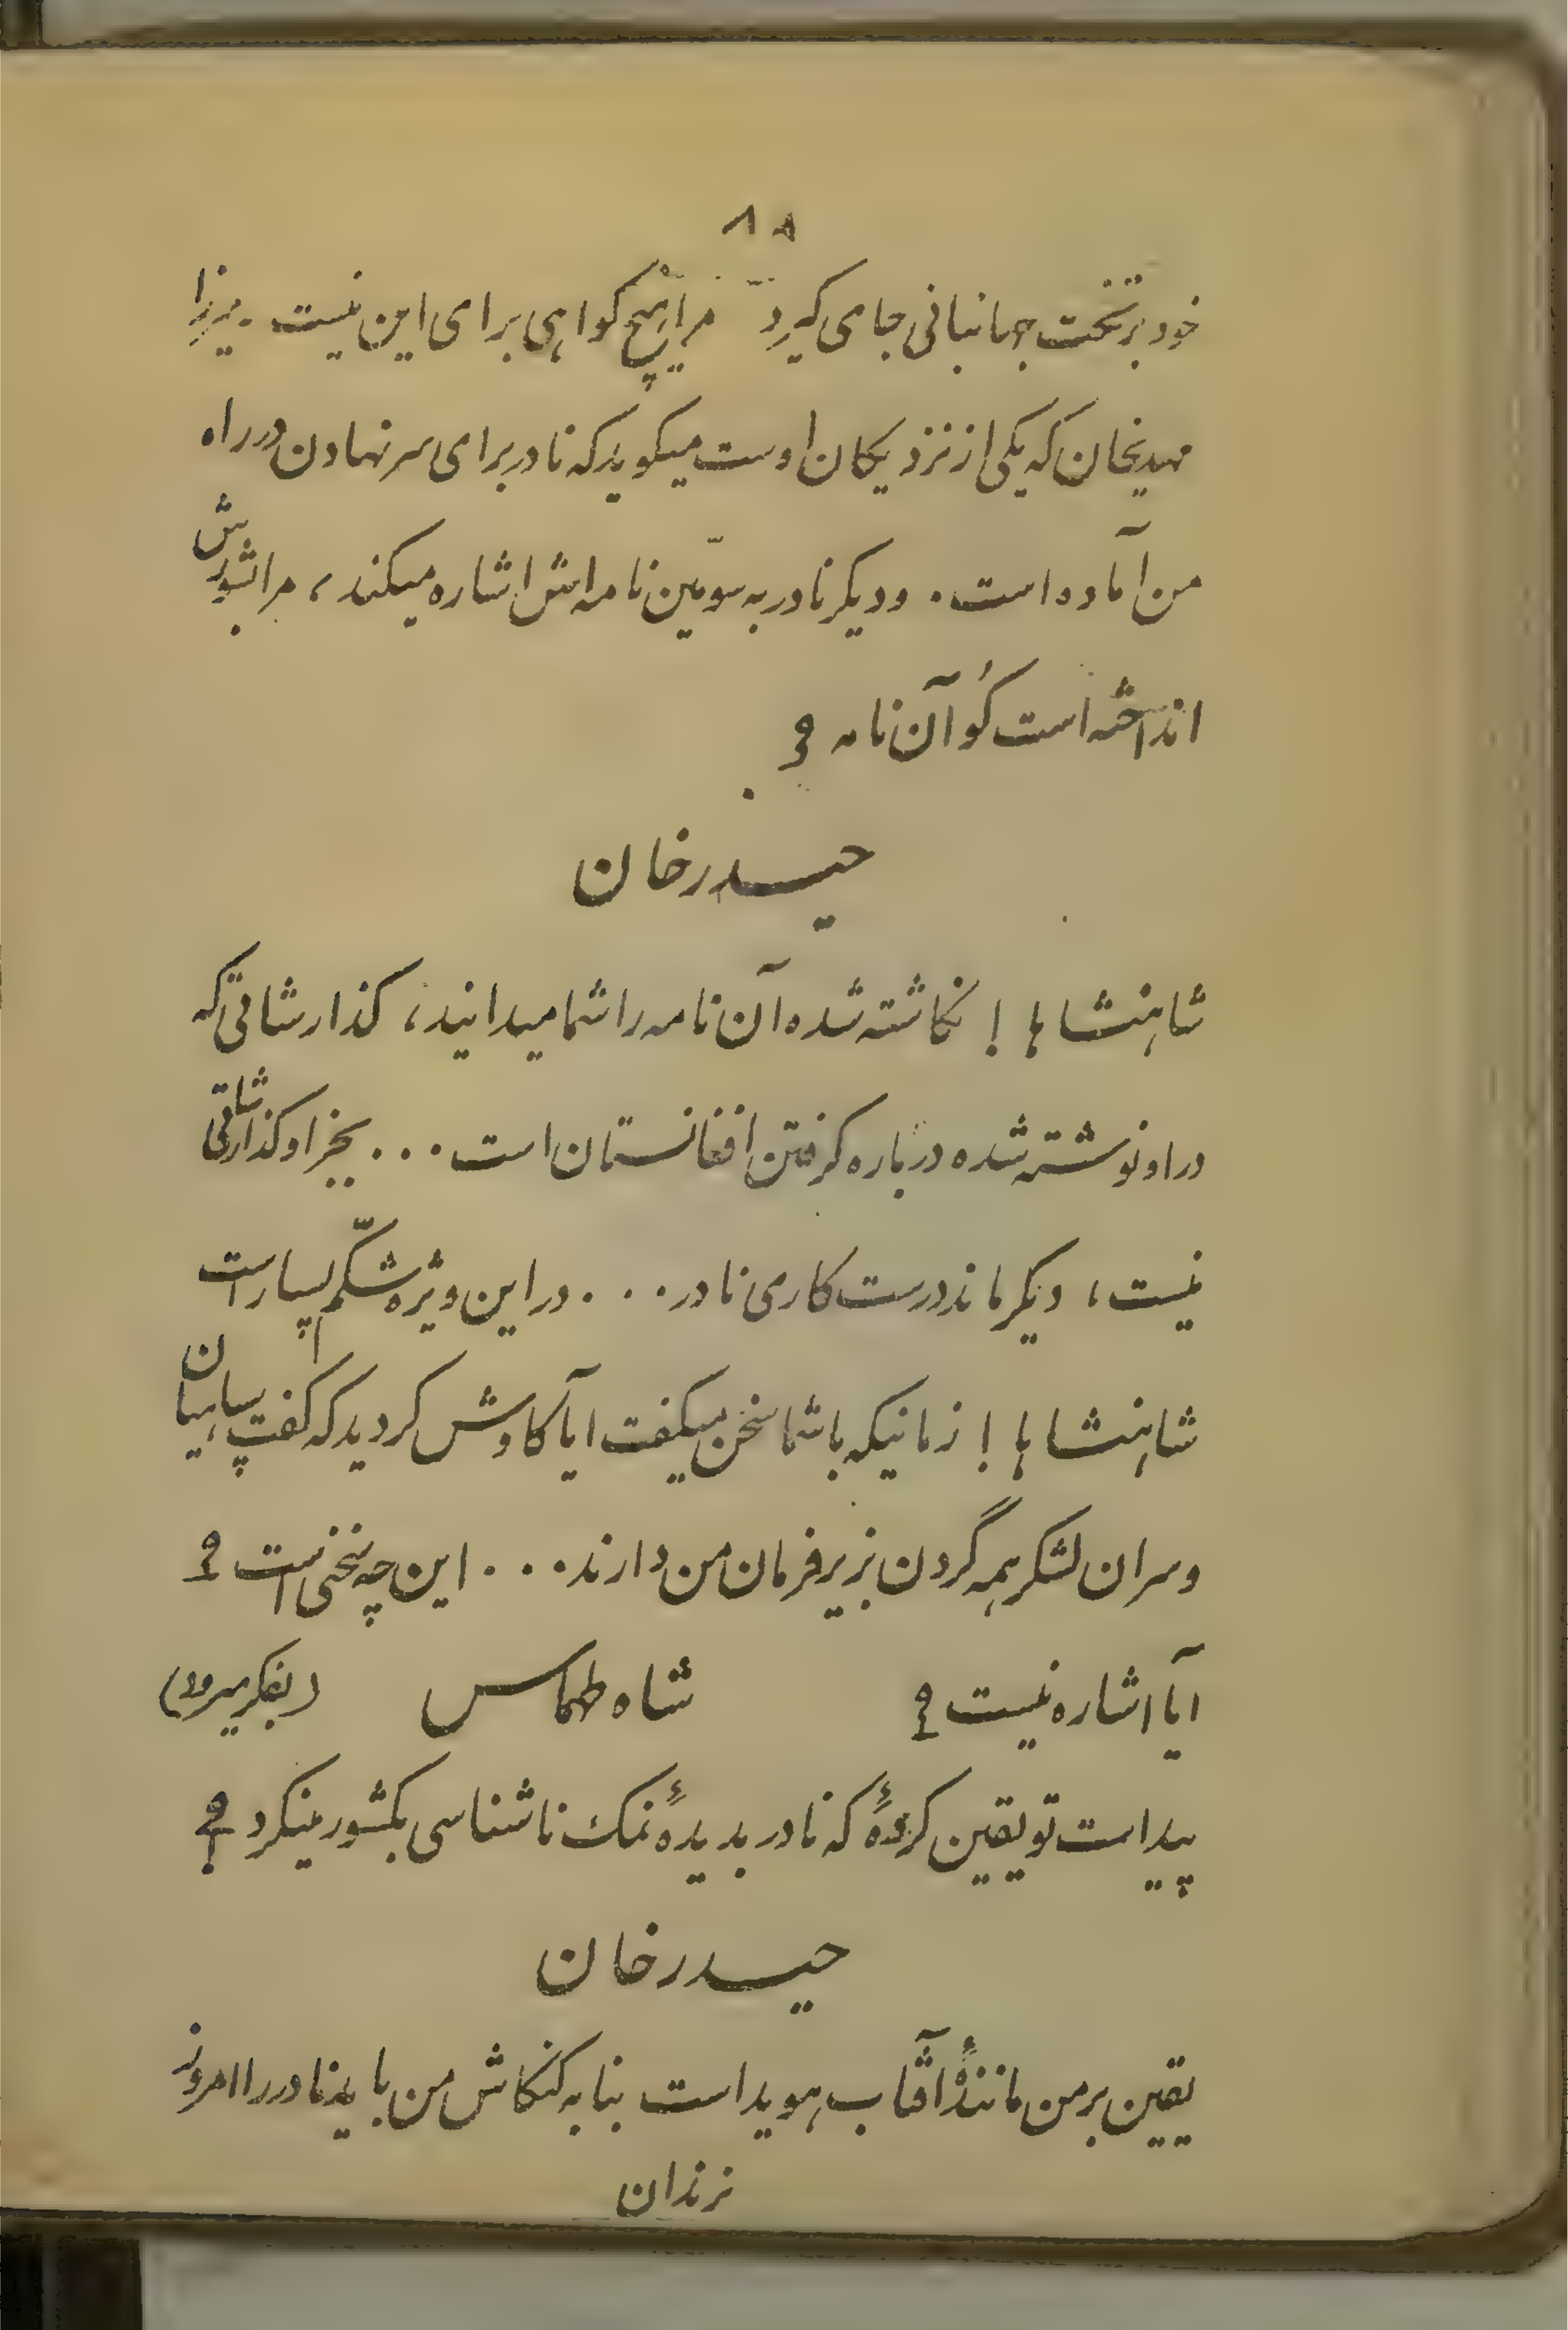 ۸۵
خود بر تخت جهانبانی جای گیرد مرا هیچ کواهی برای این نیست . میرزا
مهدیخان که یکی از نزدیکان اوست میکوید که نادر برای سر نهادن در راه
من آماده است . و دیکر نادر به سوّمین نامه اش اشاره میکند ، مرا بشورش
انداخته است کُو آن نامه ؟
حیدرخان
شاهنشاها ! نکاشته شده آن نامه را شما میدانید ، کذارشاتی که
در او نوشته شده درباره کرفتن افغانستان است . . . بجز او کذارشاتی
نیست ، دیکر ماند درست کاری نادر . . . در این ویژه شکّم بسیار است
شاهنشاها ! زمانیکه با شما سخن میکفت ایا کاوش کردید که کفت سپاهیان
و سران لشکر همه گردن بزیر فرمان من دارند . . . این چه سخنی است ؟
آیا اشاره نیست ؟ شاه طهماس (بفکر میرود)
پیداست تو یقین کردهٔ که نادر بدیدهٔ نمک ناشناسی بکشور مینکرد ؟!
حیدرخان
یقین بر من مانندٔ آفتاب هویداست بنا به کنکاش من باید نادر را امروز
زندان